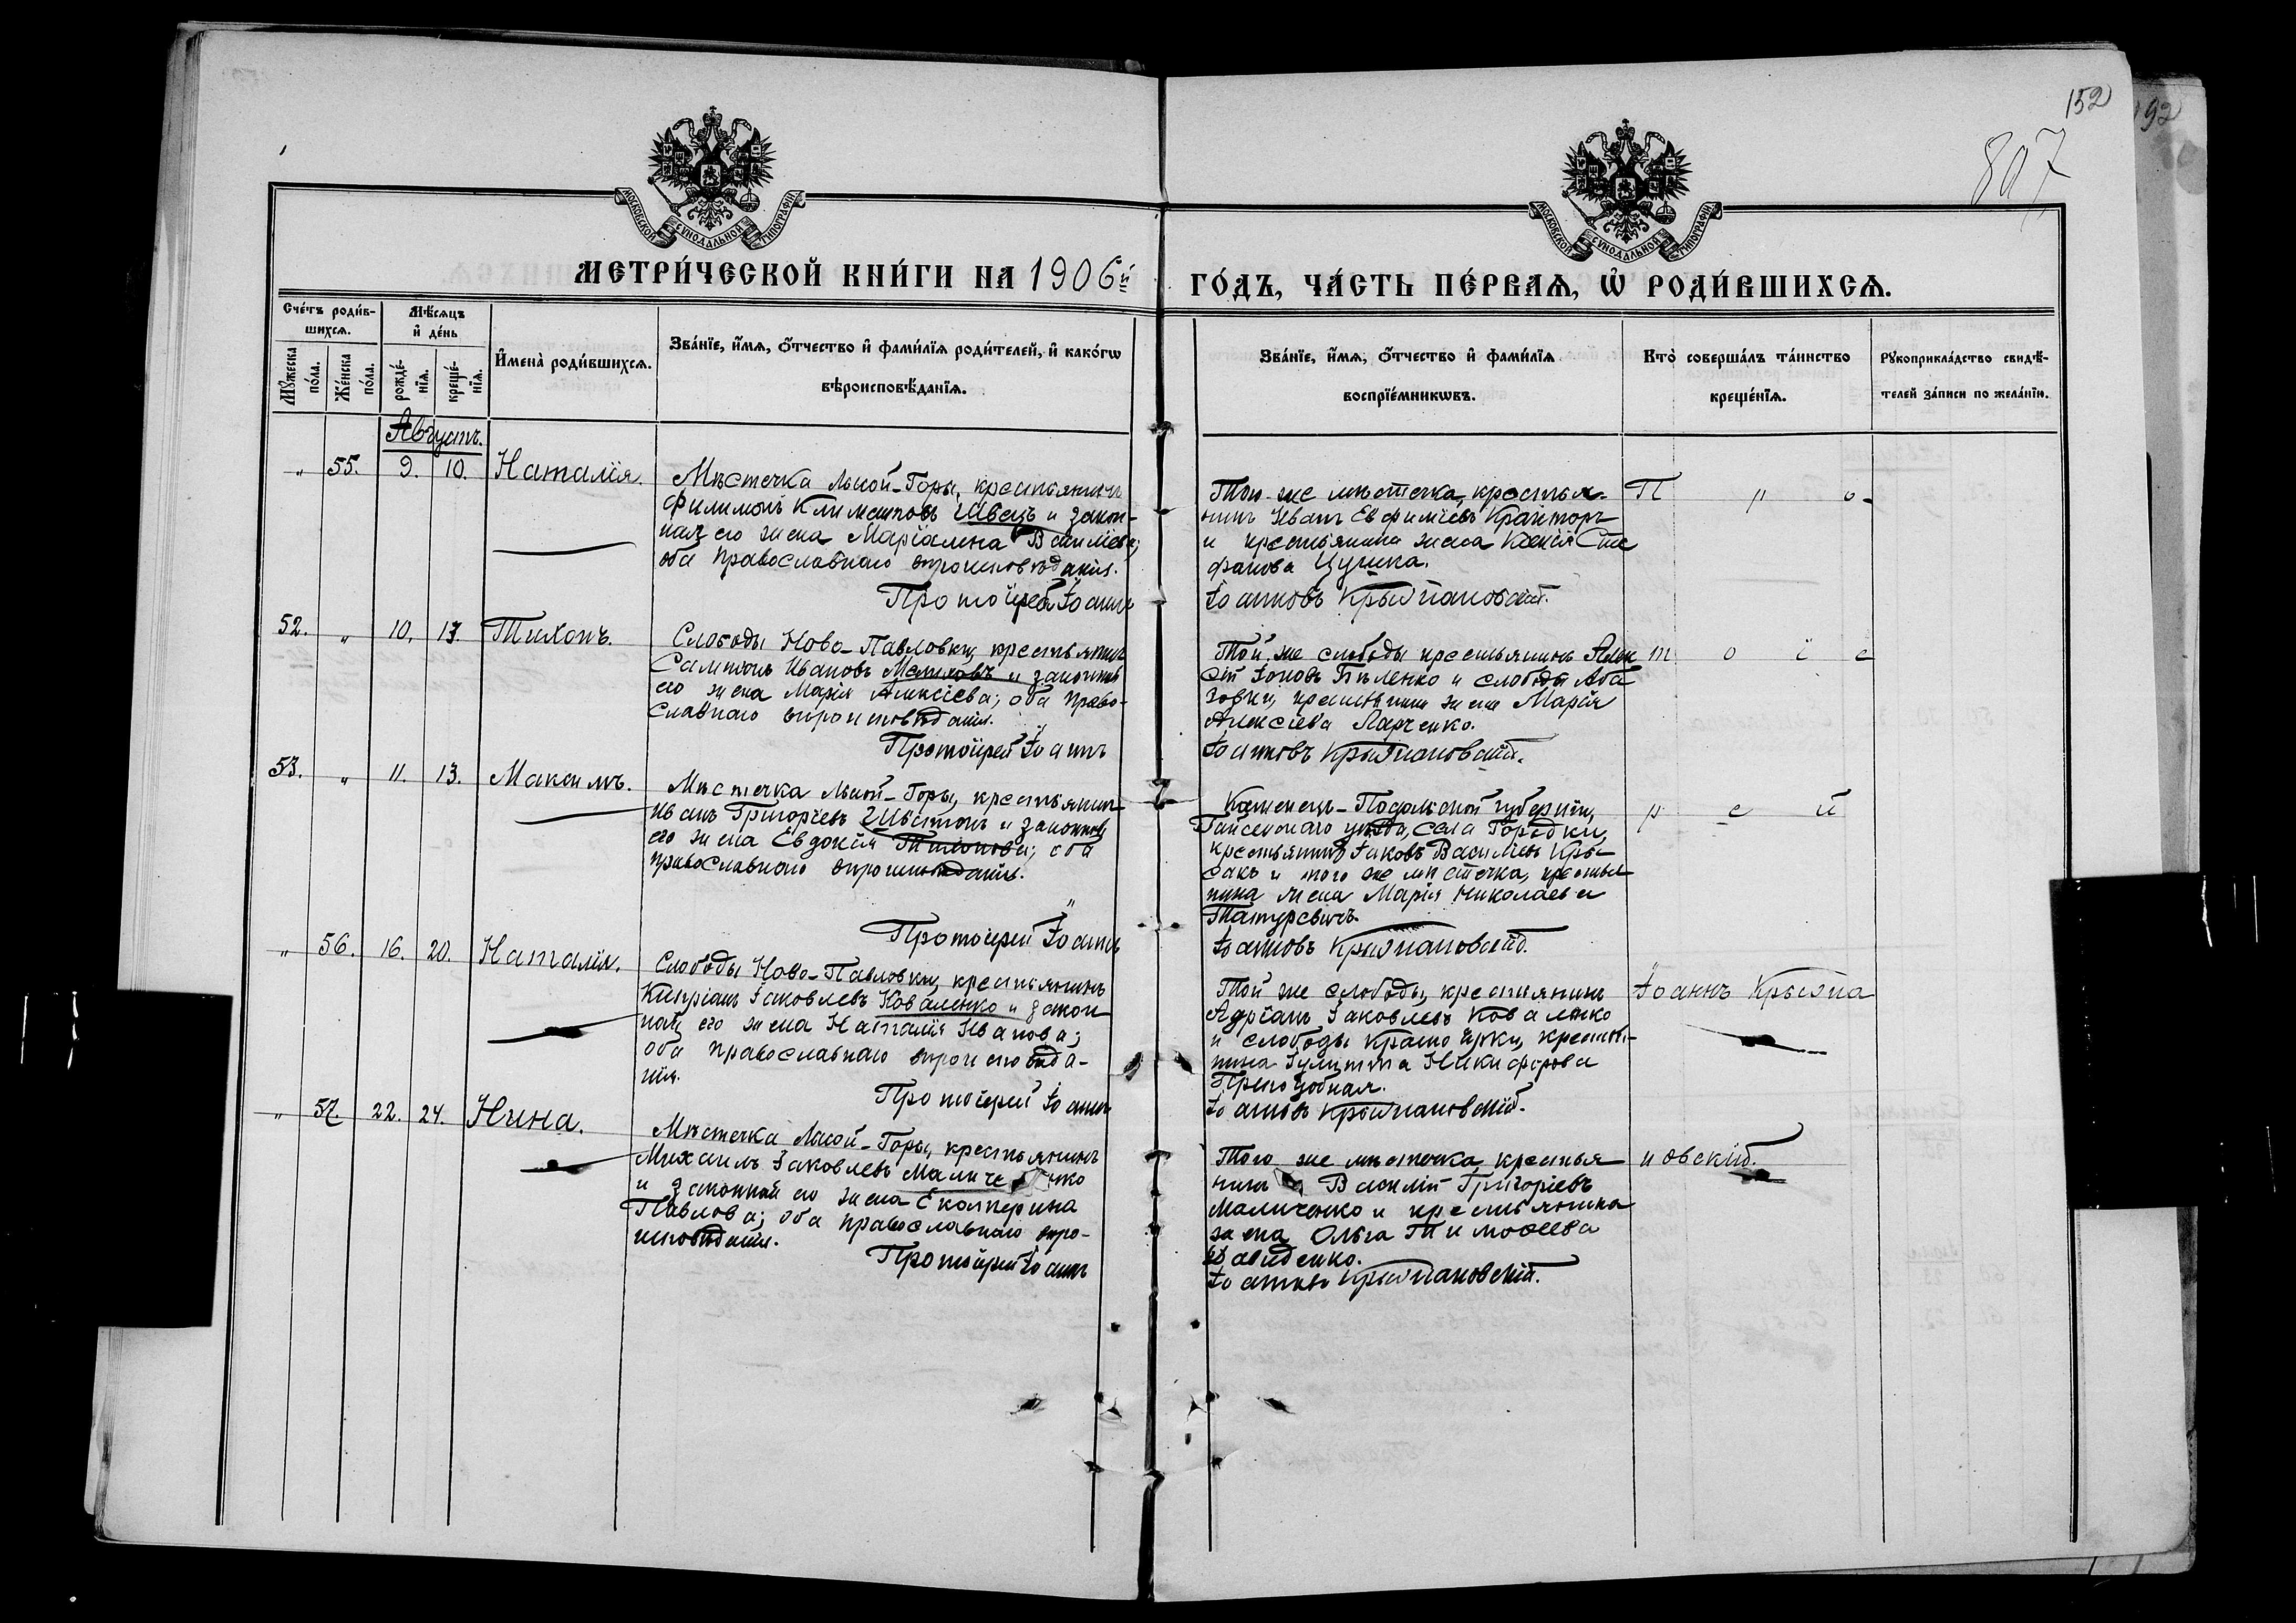 152
92
807
МОСКОВСКОЙ СѴНОДАЛЬНОЙ ТИПОГРАФІИ.
МОСКОВСКОЙ СѴНОДАЛЬНОЙ ТИПОГРАФІИ.
МЕТРИ́ЧЕСКОЙ КНИ́ГИ НА 1906й
ГО́ДЪ, ЧА́СТЬ ПЕ́РВАѦ, Ѡ҆ РОДИ́ВШИХСѦ.
Сче́тъ роди́в-
шихсѧ.
Мꙋ́жеска по́ла.
Же́нска по́ла.
Мѣ́сѧцъ
и҆ де́нь
рожде́-нїѧ.
креще́-нїѧ.
И҆мена̀ роди́вшихсѧ.
Зва́нїе, и҆́мѧ, ѻ҆́тчество и҆ фами́лїѧ роди́телей, и҆ како́гѡ
вѣроисповѣ́данїѧ.
Зва́нїе, и҆́мѧ, ѻ҆́тчество и҆ фами́лїѧ
воспрїе́мникѡвъ.
Кто̀ соверша́лъ та́инство
креще́нїѧ.
Рꙋкоприкла́дство свидѣ́-
телей за́писи по жела́нїю.
Августъ.
" 55. 9. 10. Наталія.
Мѣстечка Лысой-Горы, крестьянинъ
Филимонъ Климентовъ Швецъ и закон-
ная его жена Маріамна Василіева;
оба православнаго вѣроисповѣданія.
Протоіерей Іоаннъ
Того же мѣстечка, крестья-
нинъ Иванъ Евфиміевъ
и крестьянина жена Ксенія Сте
фанова Цушка.
Іоанновъ Крыжановскій.
П р о-
52. " 10. 13. Тихонъ.
Слободы Ново-Павловки, крестьянинъ
Сампсонъ Ивановъ и законная
его жена Марія Алексіева; оба право-
славнаго вѣроисповѣданія.
Протоіерей Іоаннъ
Той же слободы крестьянинъ Алек
сій Іоновъ Бѣленко и слободы Аба
зовки, крестьянина жена Марія
Алексіева Ларченко.
Іоанновъ Крыжановскій.
т о і е
53. " 11. 13. Максимъ.
Мѣстечка Лысой-Горы, крестьянинъ
Иванъ Григоріевъ и законная
его жена Евдокія Тихонова; оба
православнаго вѣроисповѣданія.
Протоіерей Іоаннъ
Каменецъ-Подольской губерніи,
Гайсенскаго уѣзда, села Городки,
крестьянинъ Іаковъ Василіевъ Кры-
сакъ и того же мѣстечка, крестья
нина жена Марія Николаева
Татуревичъ.
Іоанновъ Крыжановскій.
р е й
" 56. 16. 20. Наталія.
Слободы Ново-Павловки, крестьянинъ
Кипріанъ Іаковлевъ Коваленко и закон
ная его жена Наталія Иванова;
оба православнаго вѣроисповѣда-
нія.
Протоіерей Іоаннъ
Той же слободы, крестьянинъ
Адріанъ Іаковлевъ Коваленко
и слободы крестья-
нина Іулитта Никифорова
Преподобная.
Іоанновъ Крыжановскій.
Іоаннъ Крыжа
" 57. 22. 24. Нина.
Мѣстечка Лысой-Горы, крестьянинъ
Михаилъ Іаковлевъ Маличенко
и законная его жена Екатерина
Павлова; оба православнаго вѣро-
исповѣданія.
Протоіерей Іоаннъ
Того же мѣстечка, крестья
нинъ Василій Григоріевъ
Маличенко и крестьянина
жена Ольга Тимофеева
Давиденко.
Іоанновъ Крыжановскій.
новскій.